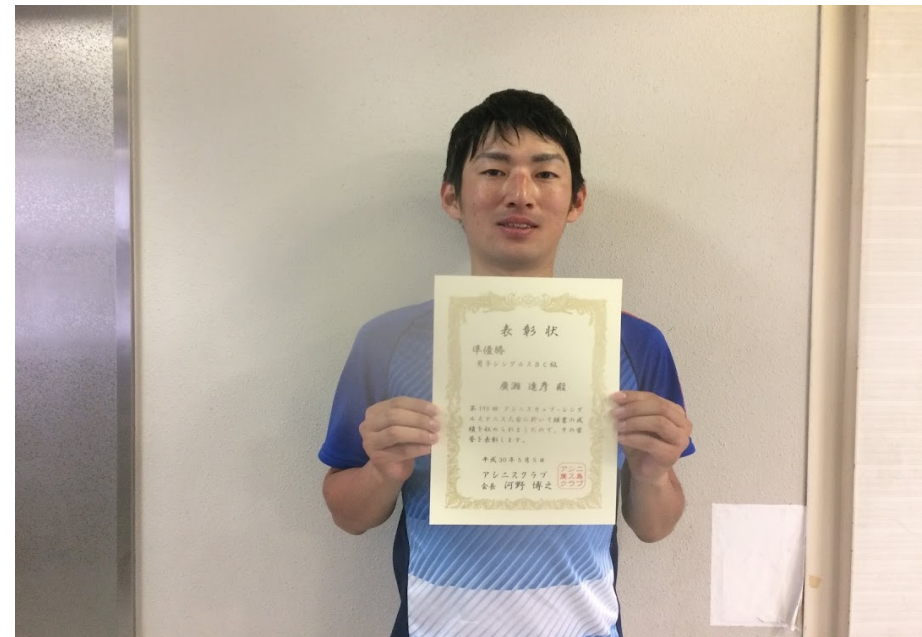 表彰状
準優勝
男子シングルスBC級
廣瀬 達彦 殿
アシニスカップ・シングル
ルステニス大会に於いて頭書の成
績を収められましたので、その栄
誉を表彰します。
平成30年5月5日
アシニスクラブ
会長 河野 博之
アシニ
クラブ